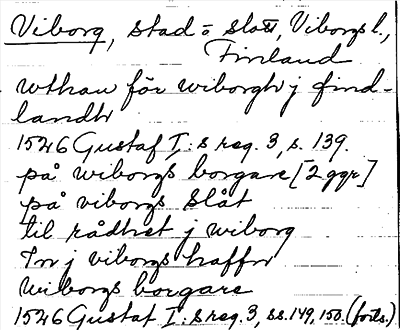 Viborg, stad o slott, Viborgs l.,
Finland
wthan för wiborgh j find-
landh
1526 Gustaf I:s reg. 3, s. 139.
på wiborgs borgare [2 ggr]
på viborgs slåt
til rådhet j wiborg
In j viborgs haffn
wiborgs borgare
1526 Gustaf I:s reg. 3, ss. 149, 150. (forts.)